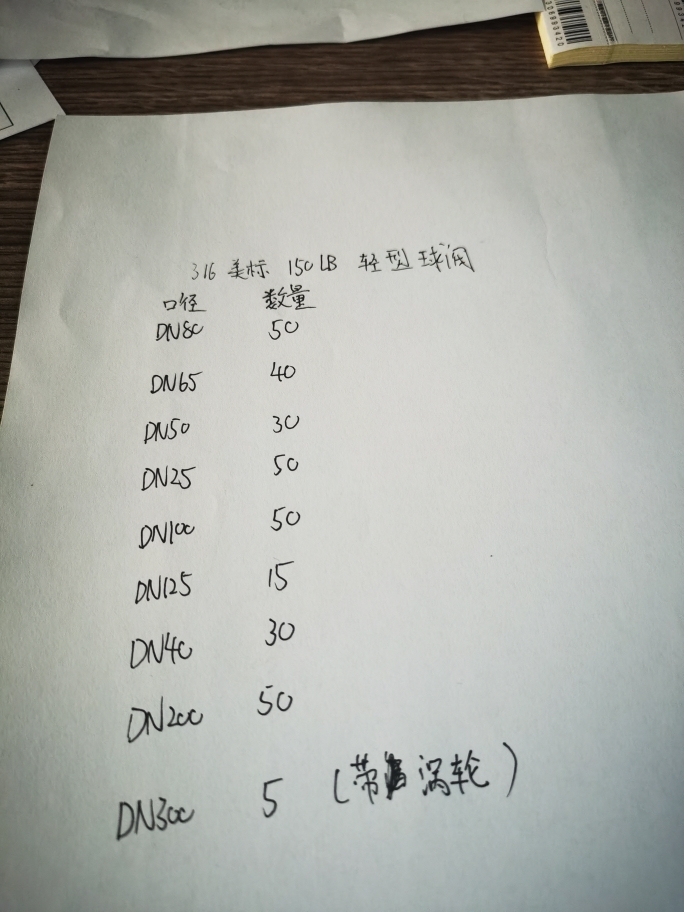 316 美标 150LB 轻型球阀
口径 数量
DN80 50
DN65 40
DN50 30
DN25 50
DN100 50
DN125 15
DN40 30
DN200 50
DN300 5 (带涡轮)